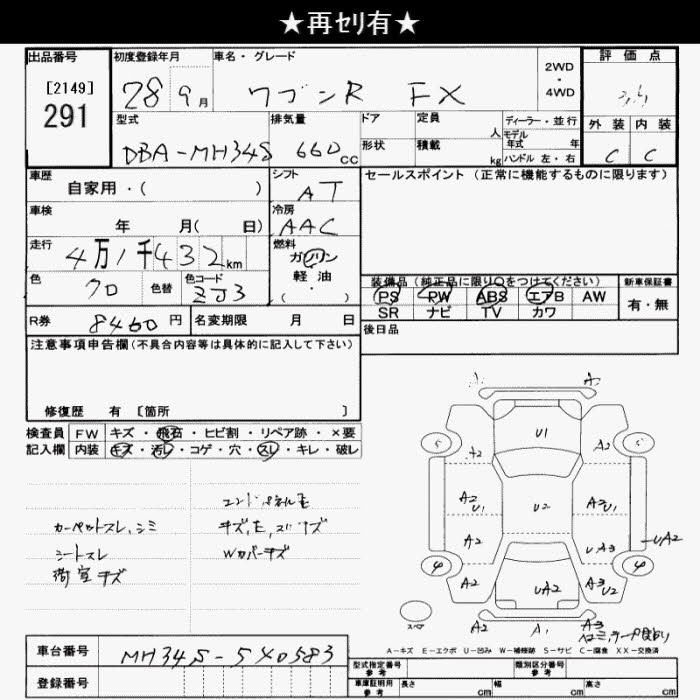 ★再セリ有★
出品番号 初度登録年月 車名・グレード 評価点
[2149]
291
28 9月 ワゴンR FX
2WD
・
4WD
型式 排気量 ドア 定員 人 ディーラー・並行 外装 内装
DBA-MH34S 660cc 形状 積載 kg モデル年式 年 C C
ハンドル 左・右
車歴 シフト セールスポイント(正常に機能するものに限ります)
自家用・( ) AT
車検 冷房
年 月( 日) AAC
走行 燃料
4万1千432km ガソリン
軽油
( ・ )
色 色替 色コード
クロ ZJ3
装備品(純正品に限り○をつけてください) 新車保証書
PS PW ABS エアB AW 有・無
SR ナビ TV カワ
R券 8460円 名変期限 月 日 後日品
注意事項申告欄(不具合内容等は具体的に記入して下さい)
修復歴 有 [箇所 ]
検査員 FW キズ・飛石・ヒビ割・リペア跡・×要
記入欄 内装 キズ・汚レ・コゲ・穴・スレ・キレ・破レ
カーペットスレ、シミ
シートスレ
荷室キズ
Wカバーキズ
A2
U1
A2
A2
5
5
A2 U1
U2
A2 U1
A2
UA3
UA2
4
4
A2
UA2
A3 U2
スペア
A2
A1
A3
車台番号 MH34S-540583
登録番号
A-キズ E-エクボ U-凹み W-補修跡 S-サビ C-腐食 XX-交換済
型式指定番号 参考 類別区分番号 参考
車庫証明用 参考 長さ cm 幅 cm 高さ cm